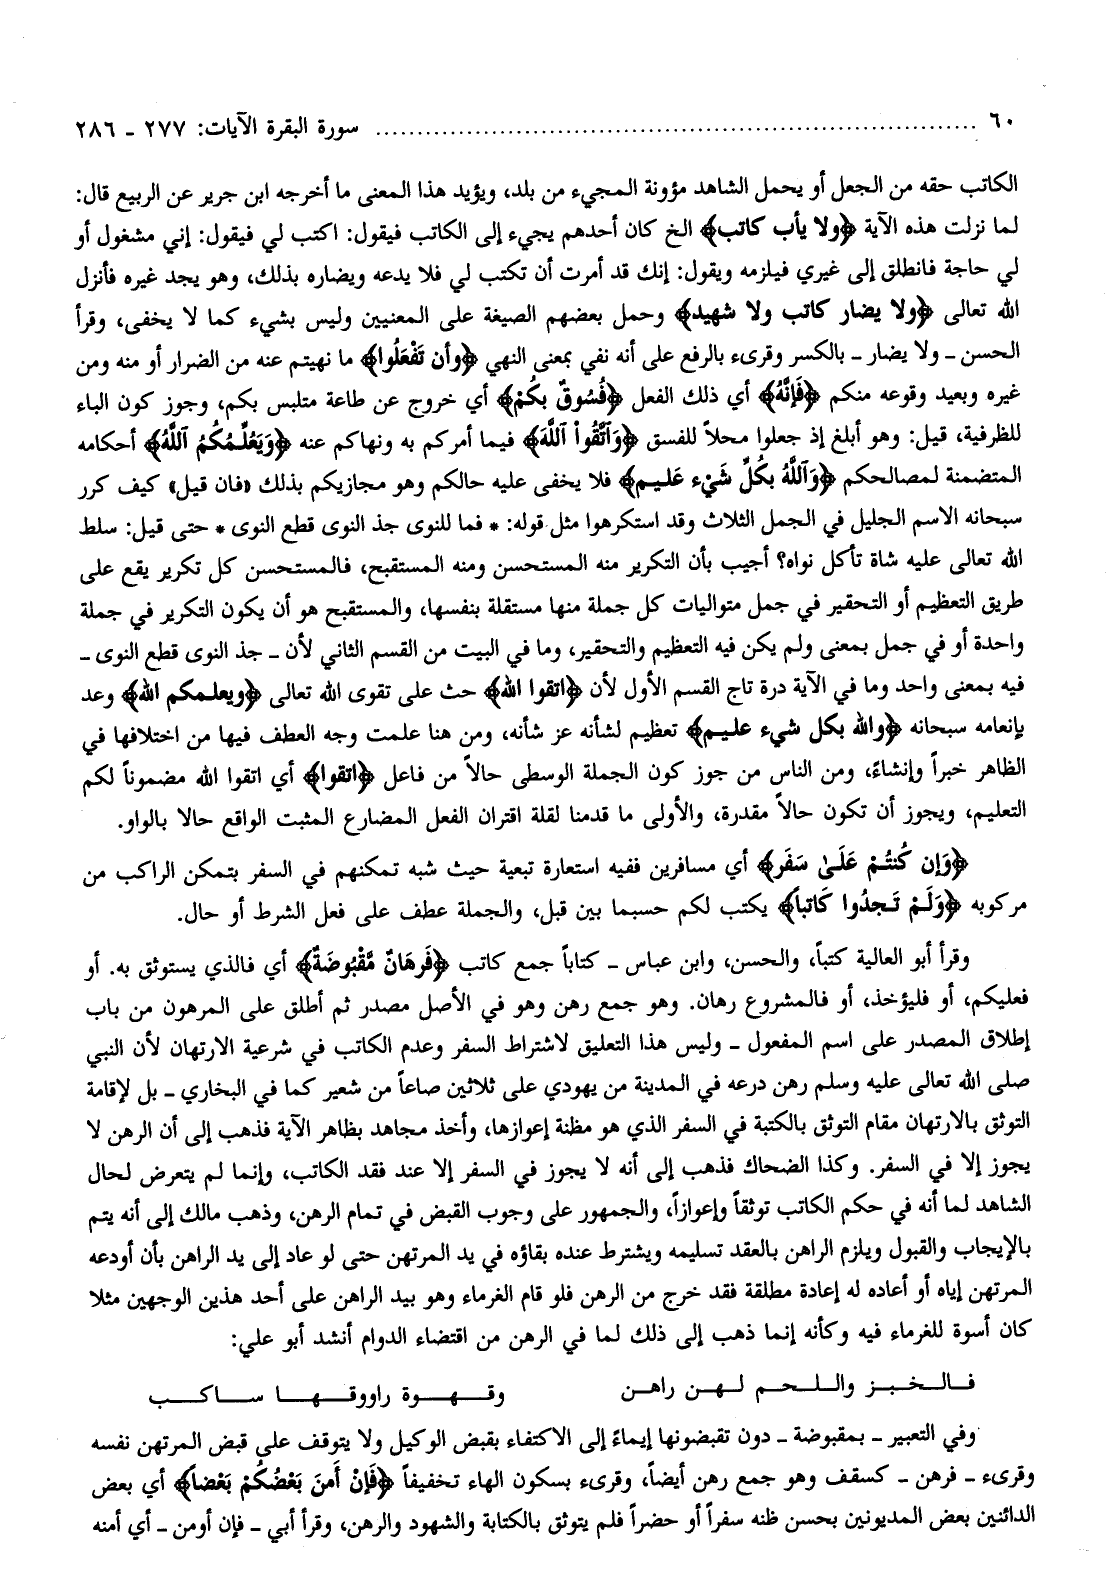 ٦٠ ........................................................................ سورة البقرة الآيات: ٢٧٧ ـ ٢٨٦
الكاتب حقه من الجعل أو يحمل الشاهد مؤونة المجيء من بلد، ويؤيد هذا المعنى ما أخرجه ابن جرير عن الربيع قال:
لما نزلت هذه الآية ﴿ولا يأب كاتب﴾ الخ كان أحدهم يجيء إلى الكاتب فيقول: اكتب لي فيقول: إني مشغول أو
لي حاجة فانطلق إلى غيري فيلزمه ويقول: إنك قد أمرت أن تكتب لي فلا يدعه ويضاره بذلك، وهو يجد غيره فأنزل
الله تعالى ﴿ولا يضار كاتب ولا شهيد﴾ وحمل بعضهم الصيغة على المعنيين وليس بشيء كما لا يخفى، وقرأ
الحسن ـ ولا يضار ـ بالكسر وقرىء بالرفع على أنه نفي بمعنى النهي ﴿وأن تَفْعَلُوا﴾ ما نهيتم عنه من الضرار أو منه ومن
غيره وبعيد وقوعه منكم ﴿فَإِنَّهُ﴾ أي ذلك الفعل ﴿فُسُوقٌ بِكُمْ﴾ أي خروج عن طاعة متلبس بكم، وجوز كون الباء
للظرفية، قيل: وهو أبلغ إذ جعلوا محلاً للفسق ﴿وَٱتَّقُواْ ٱللَّهَ﴾ فيما أمركم به ونهاكم عنه ﴿وَيُعَلِّمُكُمُ ٱللَّهُ﴾ أحكامه
المتضمنة لمصالحكم ﴿وَٱللَّهُ بِكُلِّ شَيْء عَلـيـم﴾ فلا يخفى عليه حالكم وهو مجازيكم بذلك «فان قيل» كيف كرر
سبحانه الاسم الجليل في الجمل الثلاث وقد استكرهوا مثل قوله: * فما للنوى جذ النوى قطع النوى * حتى قيل: سلط
الله تعالى عليه شاة تأكل نواه؟ أجيب بأن التكرير منه المستحسن ومنه المستقبح، فالمستحسن كل تكرير يقع على
طريق التعظيم أو التحقير في جمل متواليات كل جملة منها مستقلة بنفسها، والمستقبح هو أن يكون التكرير في جملة
واحدة أو في جمل بمعنى ولم يكن فيه التعظيم والتحقير، وما في البيت من القسم الثاني لأن ـ جذ النوى قطع النوى ـ
فيه بمعنى واحد وما في الآية درة تاج القسم الأول لأن ﴿اتقوا الله﴾ حث على تقوى الله تعالى ﴿ويعلمكم الله﴾ وعد
بإنعامه سبحانه ﴿والله بكل شيء عليم﴾ تعظيم لشأنه عز شأنه، ومن هنا علمت وجه العطف فيها من اختلافها في
الظاهر خبراً وإنشاءً، ومن الناس من جوز كون الجملة الوسطى حالاً من فاعل ﴿اتقوا﴾ أي اتقوا الله مضموناً لكم
التعليم، ويجوز أن تكون حالاً مقدرة، والأولى ما قدمنا لقلة اقتران الفعل المضارع المثبت الواقع حالا بالواو.
﴿وَإِن كُنتُـمْ عَلَـىٰ سَفَر﴾ أي مسافرين ففيه استعارة تبعية حيث شبه تمكنهم في السفر بتمكن الراكب من
مركوبه ﴿وَلَـمْ تَـجدُوا كَاتباً﴾ يكتب لكم حسبما بين قبل، والجملة عطف على فعل الشرط أو حال.
وقرأ أبو العالية كتباً، والحسن، وابن عباس ـ كتاباً جمع كاتب ﴿فَرهَانٌ مَّقْبُوضَةٌ﴾ أي فالذي يستوثق به. أو
فعليكم، أو فليؤخذ، أو فالمشروع رهان. وهو جمع رهن وهو في الأصل مصدر ثم أطلق على المرهون من باب
إطلاق المصدر على اسم المفعول ـ وليس هذا التعليق لاشتراط السفر وعدم الكاتب في شرعية الارتهان لأن النبي
صلى الله تعالى عليه وسلم رهن درعه في المدينة من يهودي على ثلاثين صاعاً من شعير كما في البخاري ـ بل لإقامة
التوثق بالارتهان مقام التوثق بالكتبة في السفر الذي هو مظنة إعوازها، وأخذ مجاهد بظاهر الآية فذهب إلى أن الرهن لا
يجوز إلا في السفر. وكذا الضحاك فذهب إلى أنه لا يجوز في السفر إلا عند فقد الكاتب، وإنما لم يتعرض لحال
الشاهد لما أنه في حكم الكاتب توثقاً وإعوازاً، والجمهور على وجوب القبض في تمام الرهن، وذهب مالك إلى أنه يتم
بالإيجاب والقبول ويلزم الراهن بالعقد تسليمه ويشترط عنده بقاؤه في يد المرتهن حتى لو عاد إلى يد الراهن بأن أودعه
المرتهن إياه أو أعاده له إعادة مطلقة فقد خرج من الرهن فلو قام الغرماء وهو بيد الراهن على أحد هذين الوجهين مثلا
كان أسوة للغرماء فيه وكأنه إنما ذهب إلى ذلك لما في الرهن من اقتضاء الدوام أنشد أبو علي:
فـالـخـبـز والـلـحـم لـهـن راهـن وقـهـوة راووقـهـا سـاكـب
وفي التعبير ـ بمقبوضة ـ دون تقبضونها إيماءً إلى الاكتفاء بقبض الوكيل ولا يتوقف على قبض المرتهن نفسه
وقرىء ـ فرهن ـ كسقف وهو جمع رهن أيضاً، وقرىء بسكون الهاء تخفيفاً ﴿فَإِنْ أَمنَ بَعْضُكُمْ بَعْضاً﴾ أي بعض
الدائنين بعض المديونين بحسن ظنه سفراً أو حضراً فلم يتوثق بالكتابة والشهود والرهن، وقرأ أبي ـ فإن أومن ـ أي أمنه